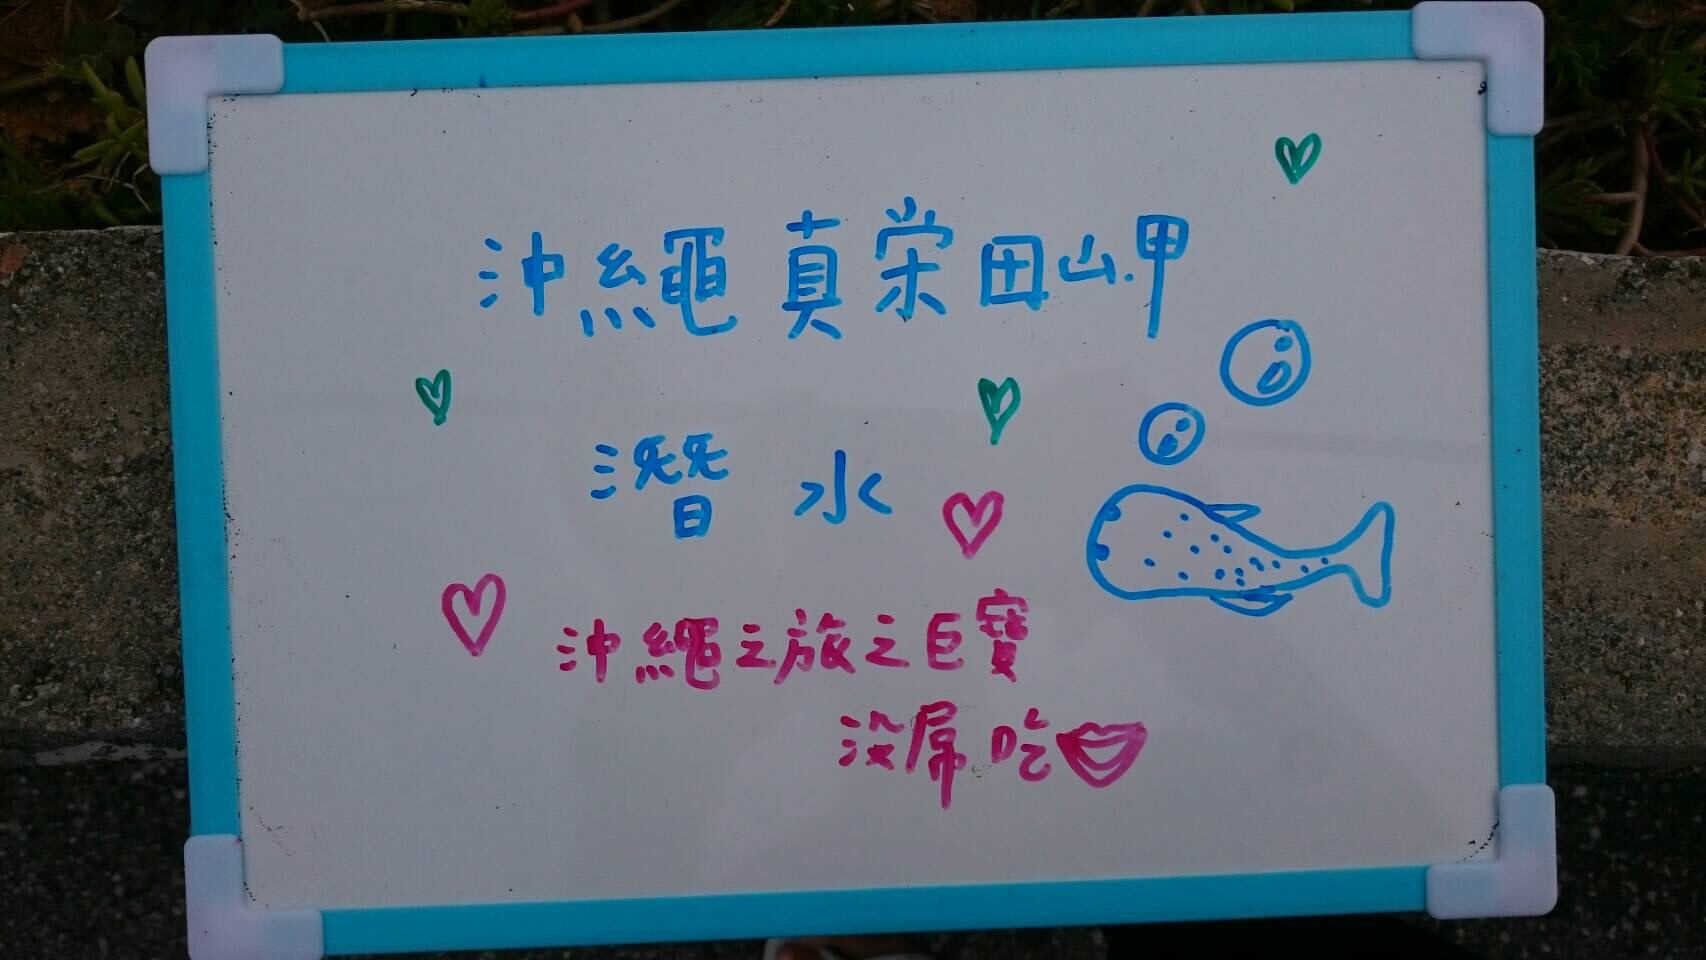 沖繩真栄田岬
潛水
沖繩之旅之巨寶
沒屌吃